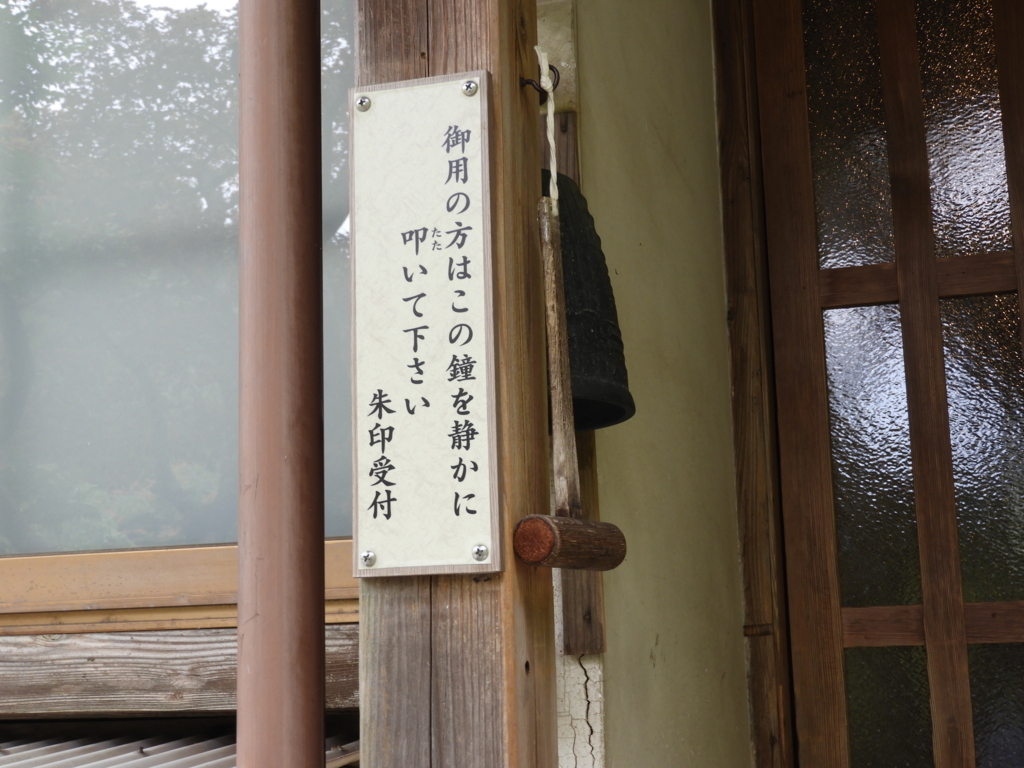 御用の方はこの鐘を静かに
叩いて下さい
たた
朱印受付